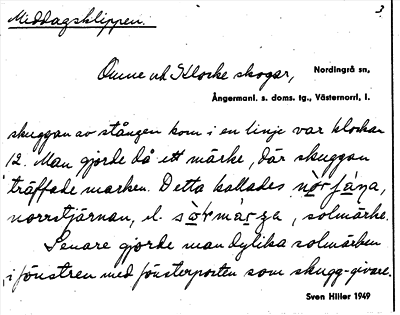 Middagsklippen. 3
Omne och Klocke skogar, Nordingrå sn,
Ångermanl. s. doms. tg., Västernorrl. l.
skuggan av stången kom i en linje var klockan
12. Man gjorde då ett märke, där skuggan
träffade marken. Detta kallades
norrstjärnan, el. solmärke.
Senare gjorde man dylika solmärken
i fönstren med fönsterposten som skugg-givare.
Sven Hiller 1949